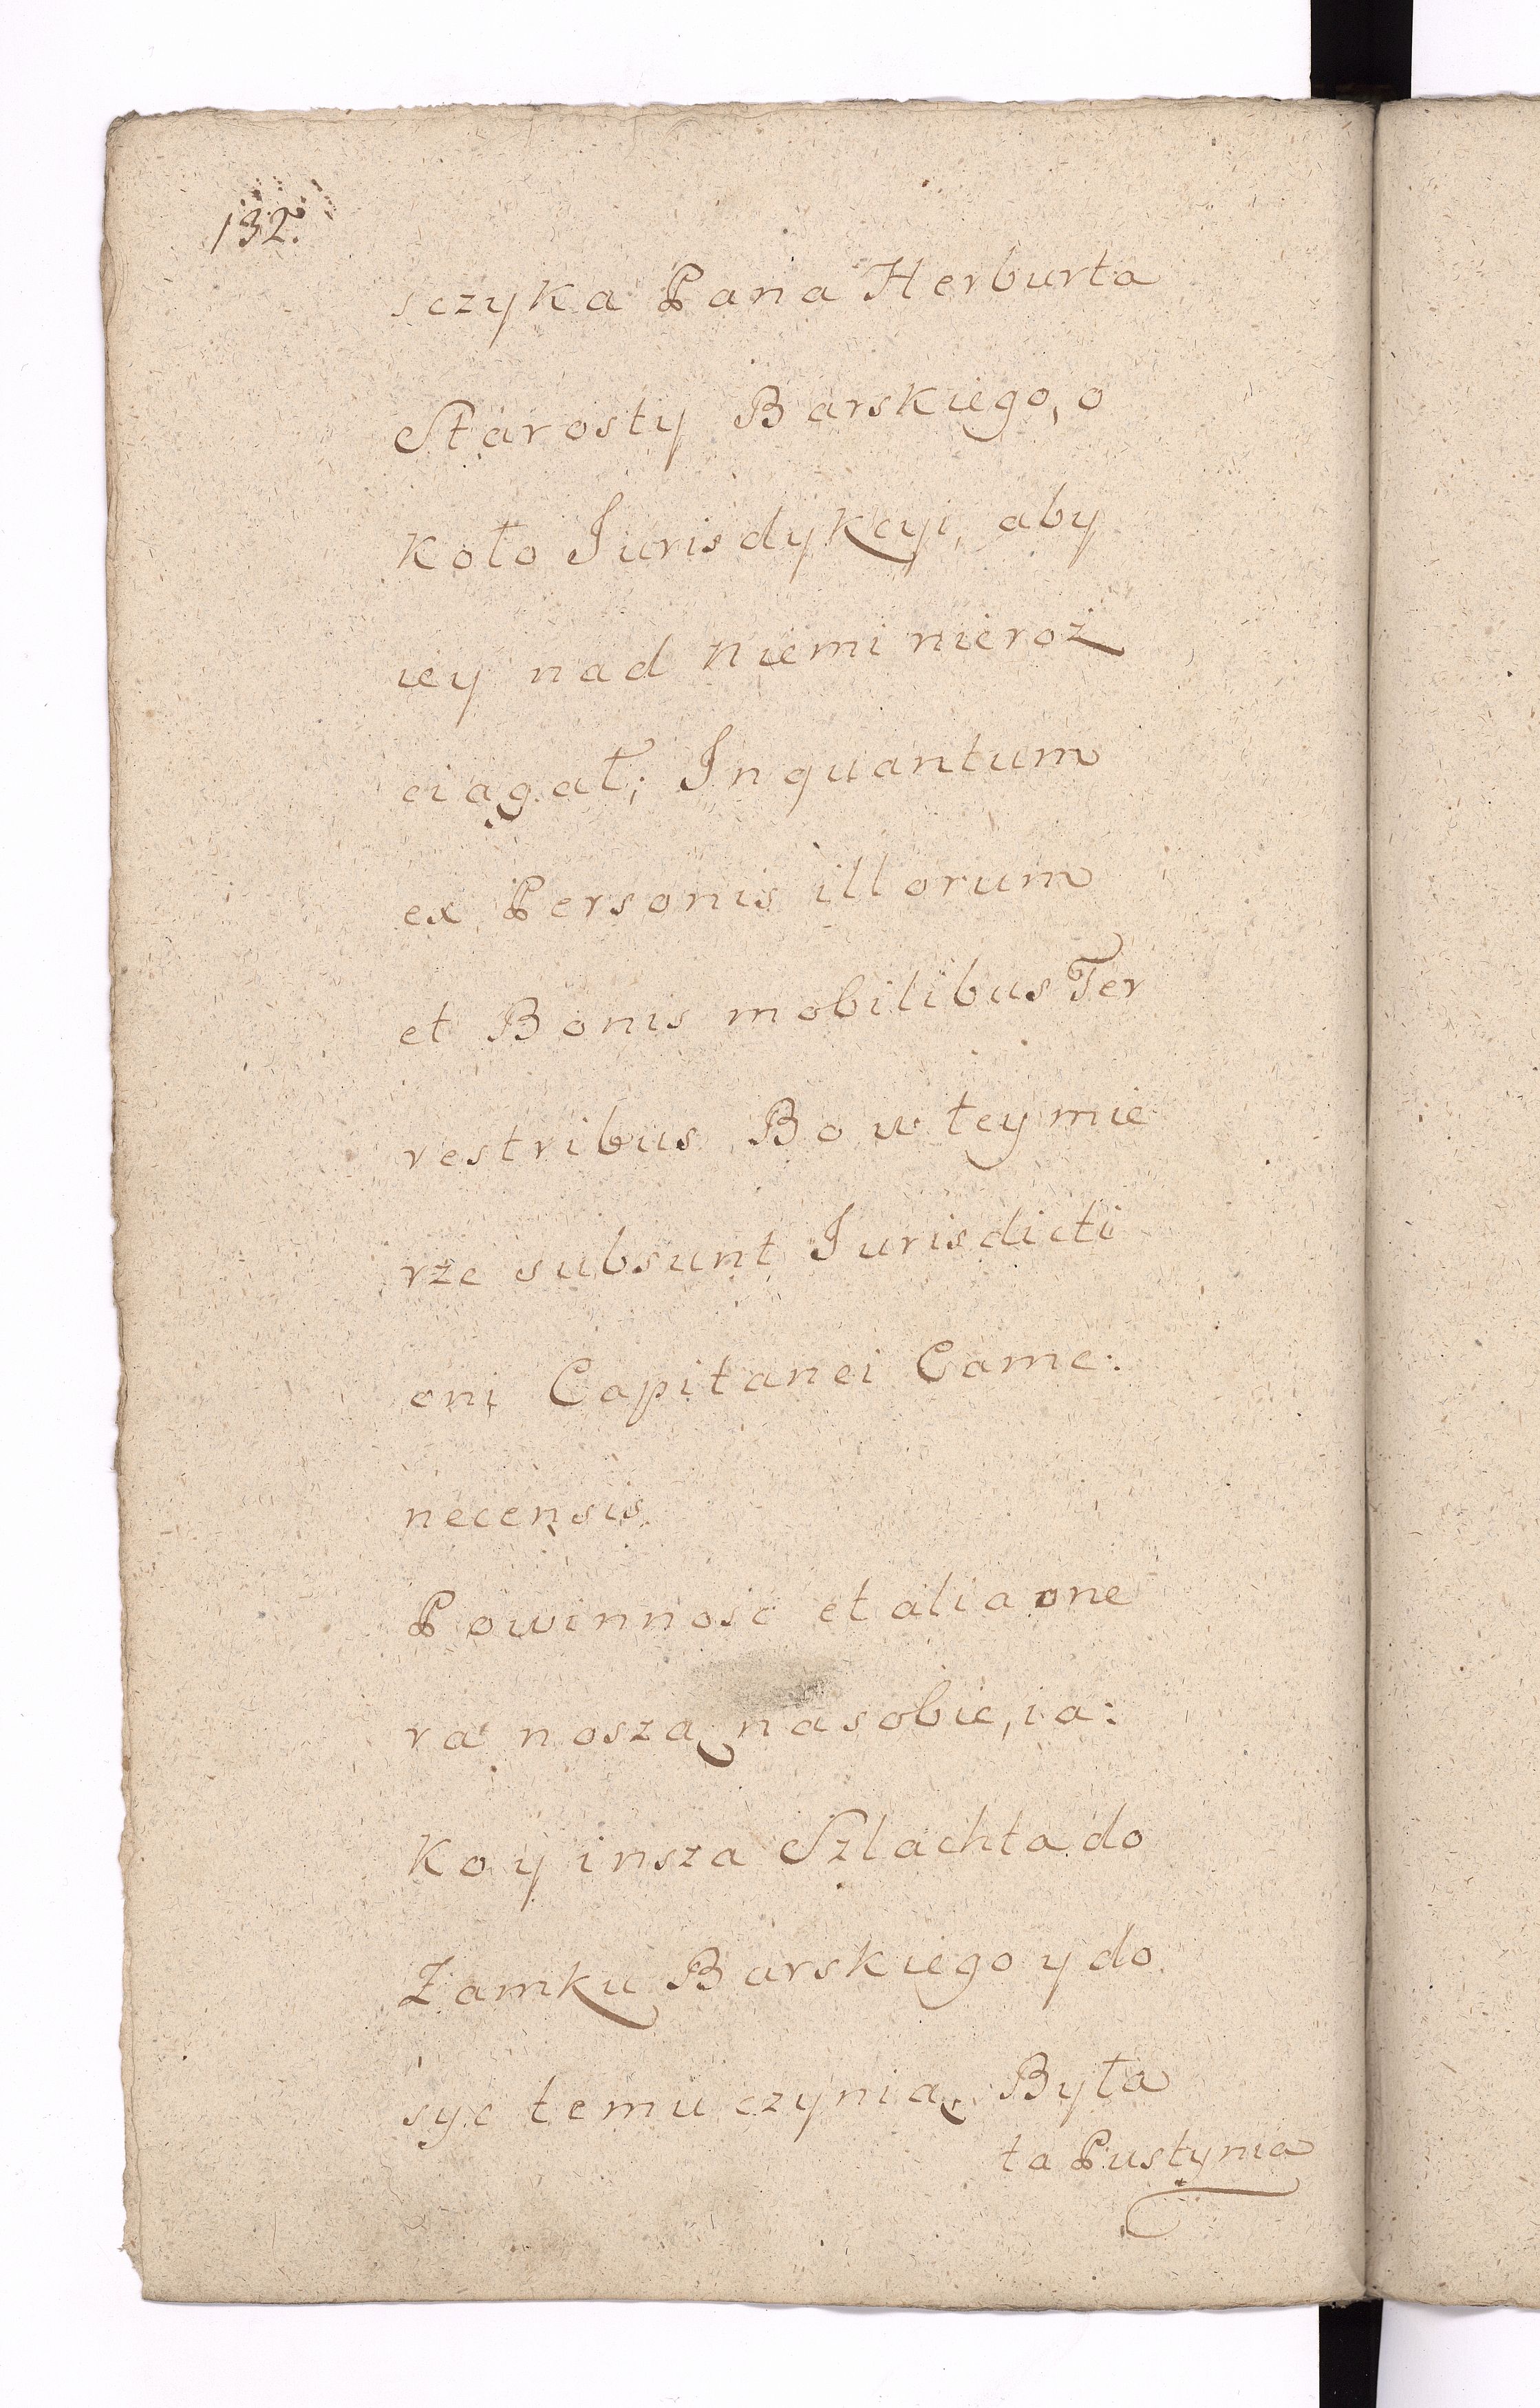 132.
sczyka Pana Herburta
Starosty Barskiego, o
koło Jurisdykcyi, aby
iey nad niemi nieroz
ciągał; In quantum
ex Personis illorum
et Bonis mobilibus Ter
restribus Bo w tey mie
rze subsunt Jurisdicti
oni Capitanei Came:
necensis.
Powinnosc et alia one
ra noszą na sobie, ia:
ko y insza Szlachta do
Zamku Barskiego y do
syc temu czynią, Była
ta Pustynia